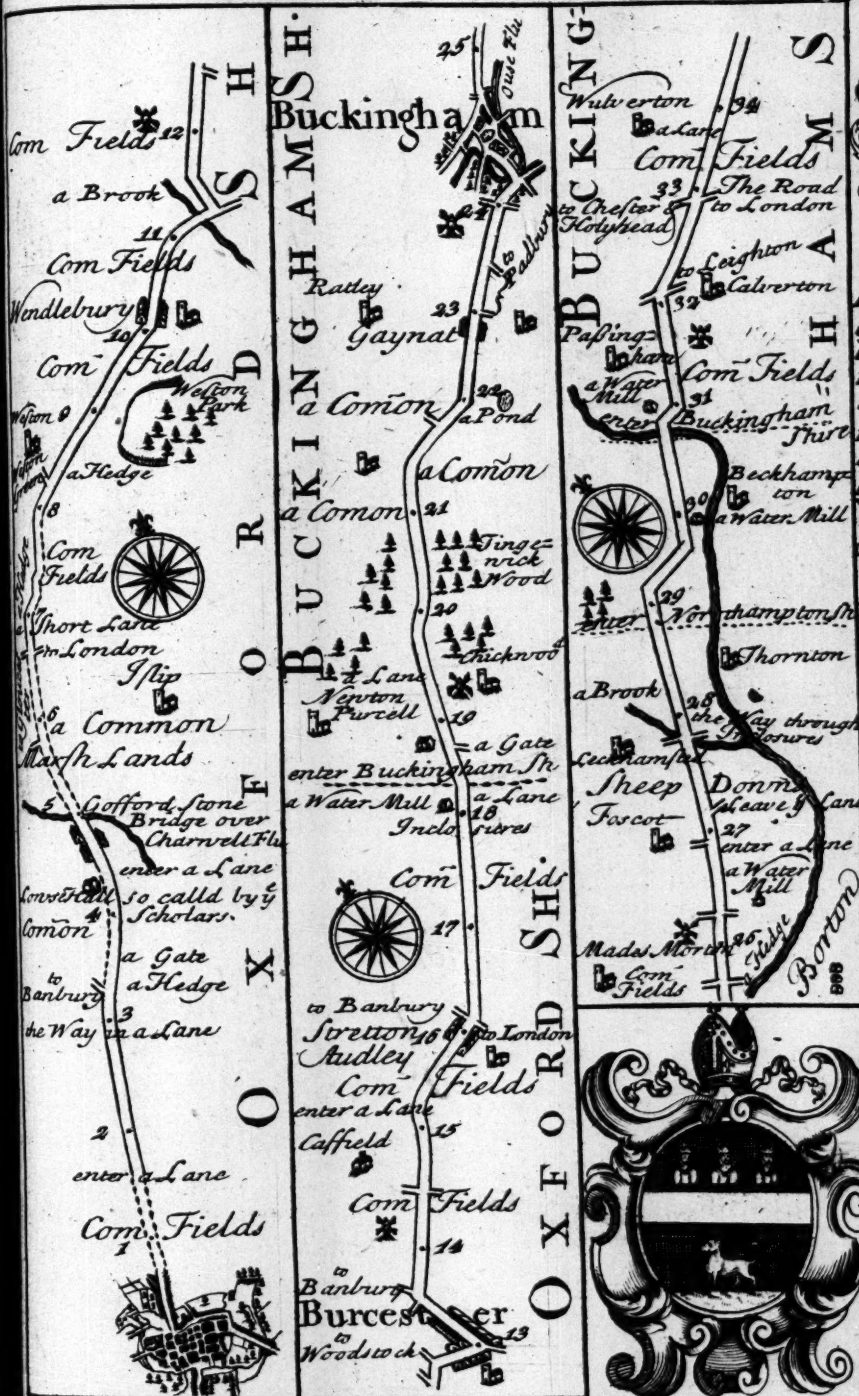 12
Com Fields
a Brook
11
Com Fields
Wendlebury
10
Com Fields
Weston
Park
Weston 9
a Hedge
8
Com
Fields
7
Short Lane
to London
Islip
6
a Common
Marsh Lands
5 Gofford Stone
Bridge over
Charwell Flu
enter a Lane
Lowse Hall so calld by yᵉ
4 Scholars.
Com̄on
a Gate
to
Banbury
a Hedge
3
the Way in a Lane
2
enter a Lane
Com Fields
1
OXFORD SH
25
Ouse Flu
Buckingham
24
to
Padbury
Ratley
23
Gaynat
22
a Com̄on
a Pond
a Com̄on
a Comon 21
Tinge=
wick
Wood
20
Chickwood
a Lane
Newton
Purcell
19
a Gate
enter Buckingham Sh
a Water Mill a Lane
18
Inclosures
Com̄ Fields
17
to Banbury
Stretton 16 to London
Audley
Com̄ Fields
enter a Lane
15
Caffield
Com̄ Fields
14
to
Banbury
Burcester
13
to
Woodstock
BUCKINGHAMSH.
OXFORD SH.
Wulverton
34
a Lane
Com̄ Fields
33 The Road
to Chester &
Holyhead
to London
to Leighton
Calverton
32
Paßing=
ham
Com̄ Fields
a Water
Mill
31
enter Buckingham
Shire
Beckhamp=
ton
30
a Water Mill
29
enter Northampton Sh
Thornton
a Brook
28
the Way through
Inclosures
Leckhamsted
Sheep Donns
Leave yᵉ Lane
Foscot
27
enter a Lane
a Water
Mill
26
Mades Morton
a Hedge
Com̄
Fields
Borton
BUCKING=
HAMS